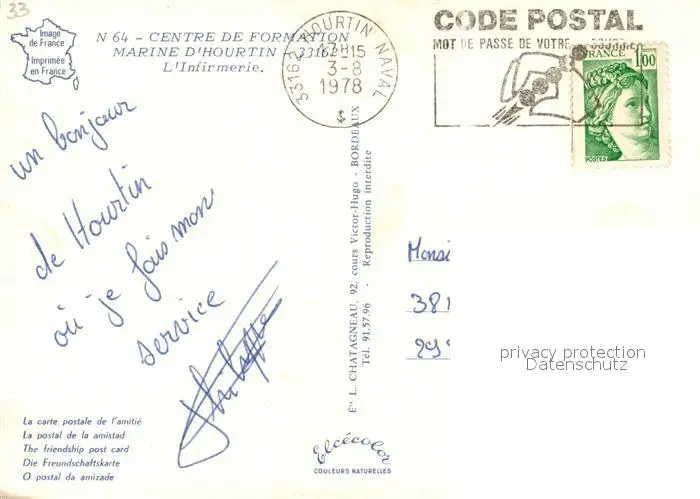 33
Image
de France
Imprimée
en France
N 64 - CENTRE DE FORMATION
MARINE D'HOURTIN - 33162
L'Infirmerie.
33162 HOURTIN NAVAL
-15
3-8
1978
CODE POSTAL
MOT DE PASSE DE VOTRE
1,00
FRANCE
POSTES
un bonjour
de Hourtin
où je fais mon
service
Philippe
Éts L. CHATAGNEAU, 92, cours Victor-Hugo - BORDEAUX
Tél. 91.57.96 - Reproduction interdite
Monsi
381
29
privacy protection
Datenschutz
La carte postale de l'amitié
La postal de la amistad
The friendship post card
Die Freundschaftskarte
O postal da amizade
Elcécolor
COULEURS NATURELLES